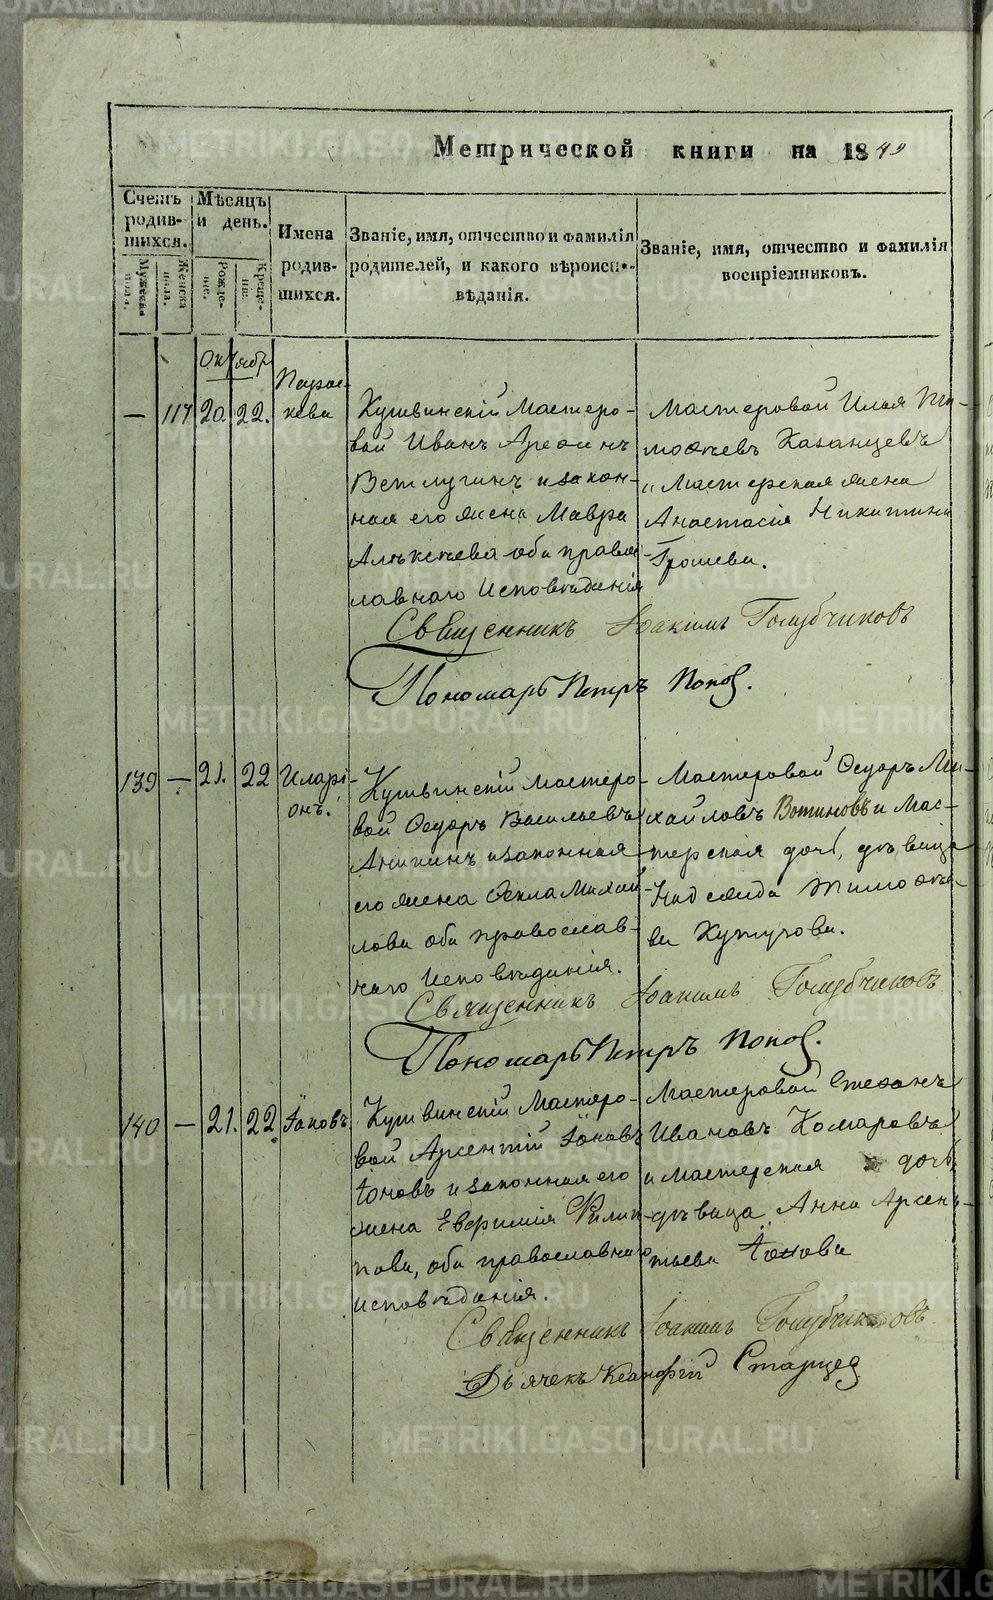 METRIKI.GASO-URAL.RU
Метрической книги на 1849
Счетъ родив- шихся.
Мужеска пола.
Женска пола.
Мѣсяцъ и день.
Рожде- ніе.
Креще- ніе.
Имена родив- шихся.
Званіе, имя, отчество и фамилія родителей, и какого вѣроиспо- вѣданія.
Званіе, имя, отчество и фамилія воспріемниковъ.
Октябр
— 117 20. 22. Параскева
Кушвинскій Мастеро-
вой Иванъ
Ветлугинъ и закон-
ная его жена Мавра
Алексѣева оба правос-
лавнаго Исповѣданія
Мастеровой Илья Ти-
моѳѣевъ Казанцевъ
и Мастерская жена
Анастасія Никитина
Грошева.
Священникъ Іоакимъ Голубчиковъ
Пономарь Петръ Попов.
139 — 21. 22 Иларі-
онъ.
Кушвинскій мастеро-
вой Ѳедоръ Васильевъ
Аникинъ и законная
его жена Ѳекла Михаи-
лова оба православ-
наго Исповѣданія.
Мастеровой Ѳедоръ Ми-
хайловъ Вотиновъ и Мас-
терская дочь, дѣвица
Надежда Тимоѳѣе-
ва Кутузова.
Священникъ Іоакимъ Голубчиковъ
Пономарь Петръ Попов.
140 — 21. 22. Іаковъ
Кушвинскій Мастеро-
вой Арсентій Іаковъ
Іоновъ и законная его
жена Евфимія Филип-
пова, оба православнаго
исповѣданія.
Мастеровой Стефанъ
Ивановъ Комаровъ
и мастерская дочь,
дѣвица Анна Арсен-
тьева Іонова
Священникъ Іоакимъ Голубчиковъ
Дьячекъ Ксанфій Старцев